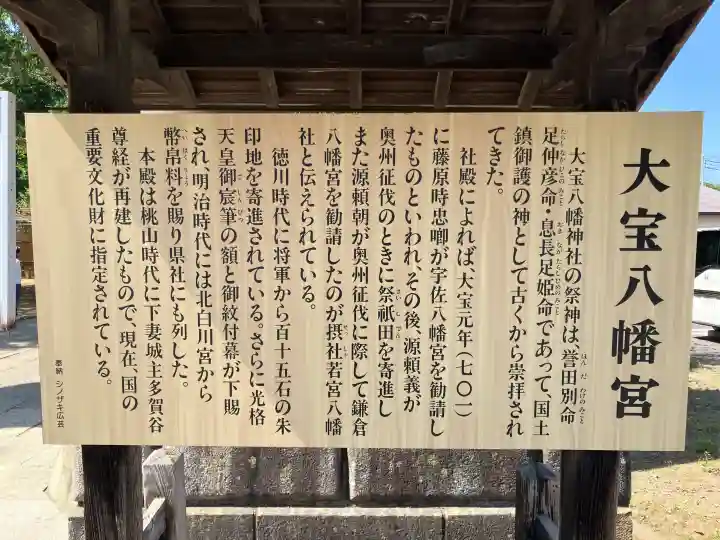 大宝八幡宮
大宝八幡神社の祭神は、誉田別命
足仲彦命・息長足姫命であって、国土
鎮御護の神として古くから崇拝され
てきた。
社殿によれば、大宝元年(七〇一)
に藤原時忠卿が宇佐八幡宮を勧請し
たものといわれ、その後、源頼義が
奥州征伐のときに祭祇田を寄進し
また源頼朝が奥州征伐に際して鎌倉
八幡宮を勧請したのが摂社若宮八幡
社と伝えられている。
徳川時代に将軍から百十五石の朱
印地を寄進されている。さらに光格
天皇御宸筆の額と御紋付幕が下賜
され、明治時代には北白川宮から
幣帛料を賜り県社にも列した。
本殿は桃山時代に下妻城主多賀谷
尊経が再建したもので、現在、国の
重要文化財に指定されている。
奉納 シノザキ広芸